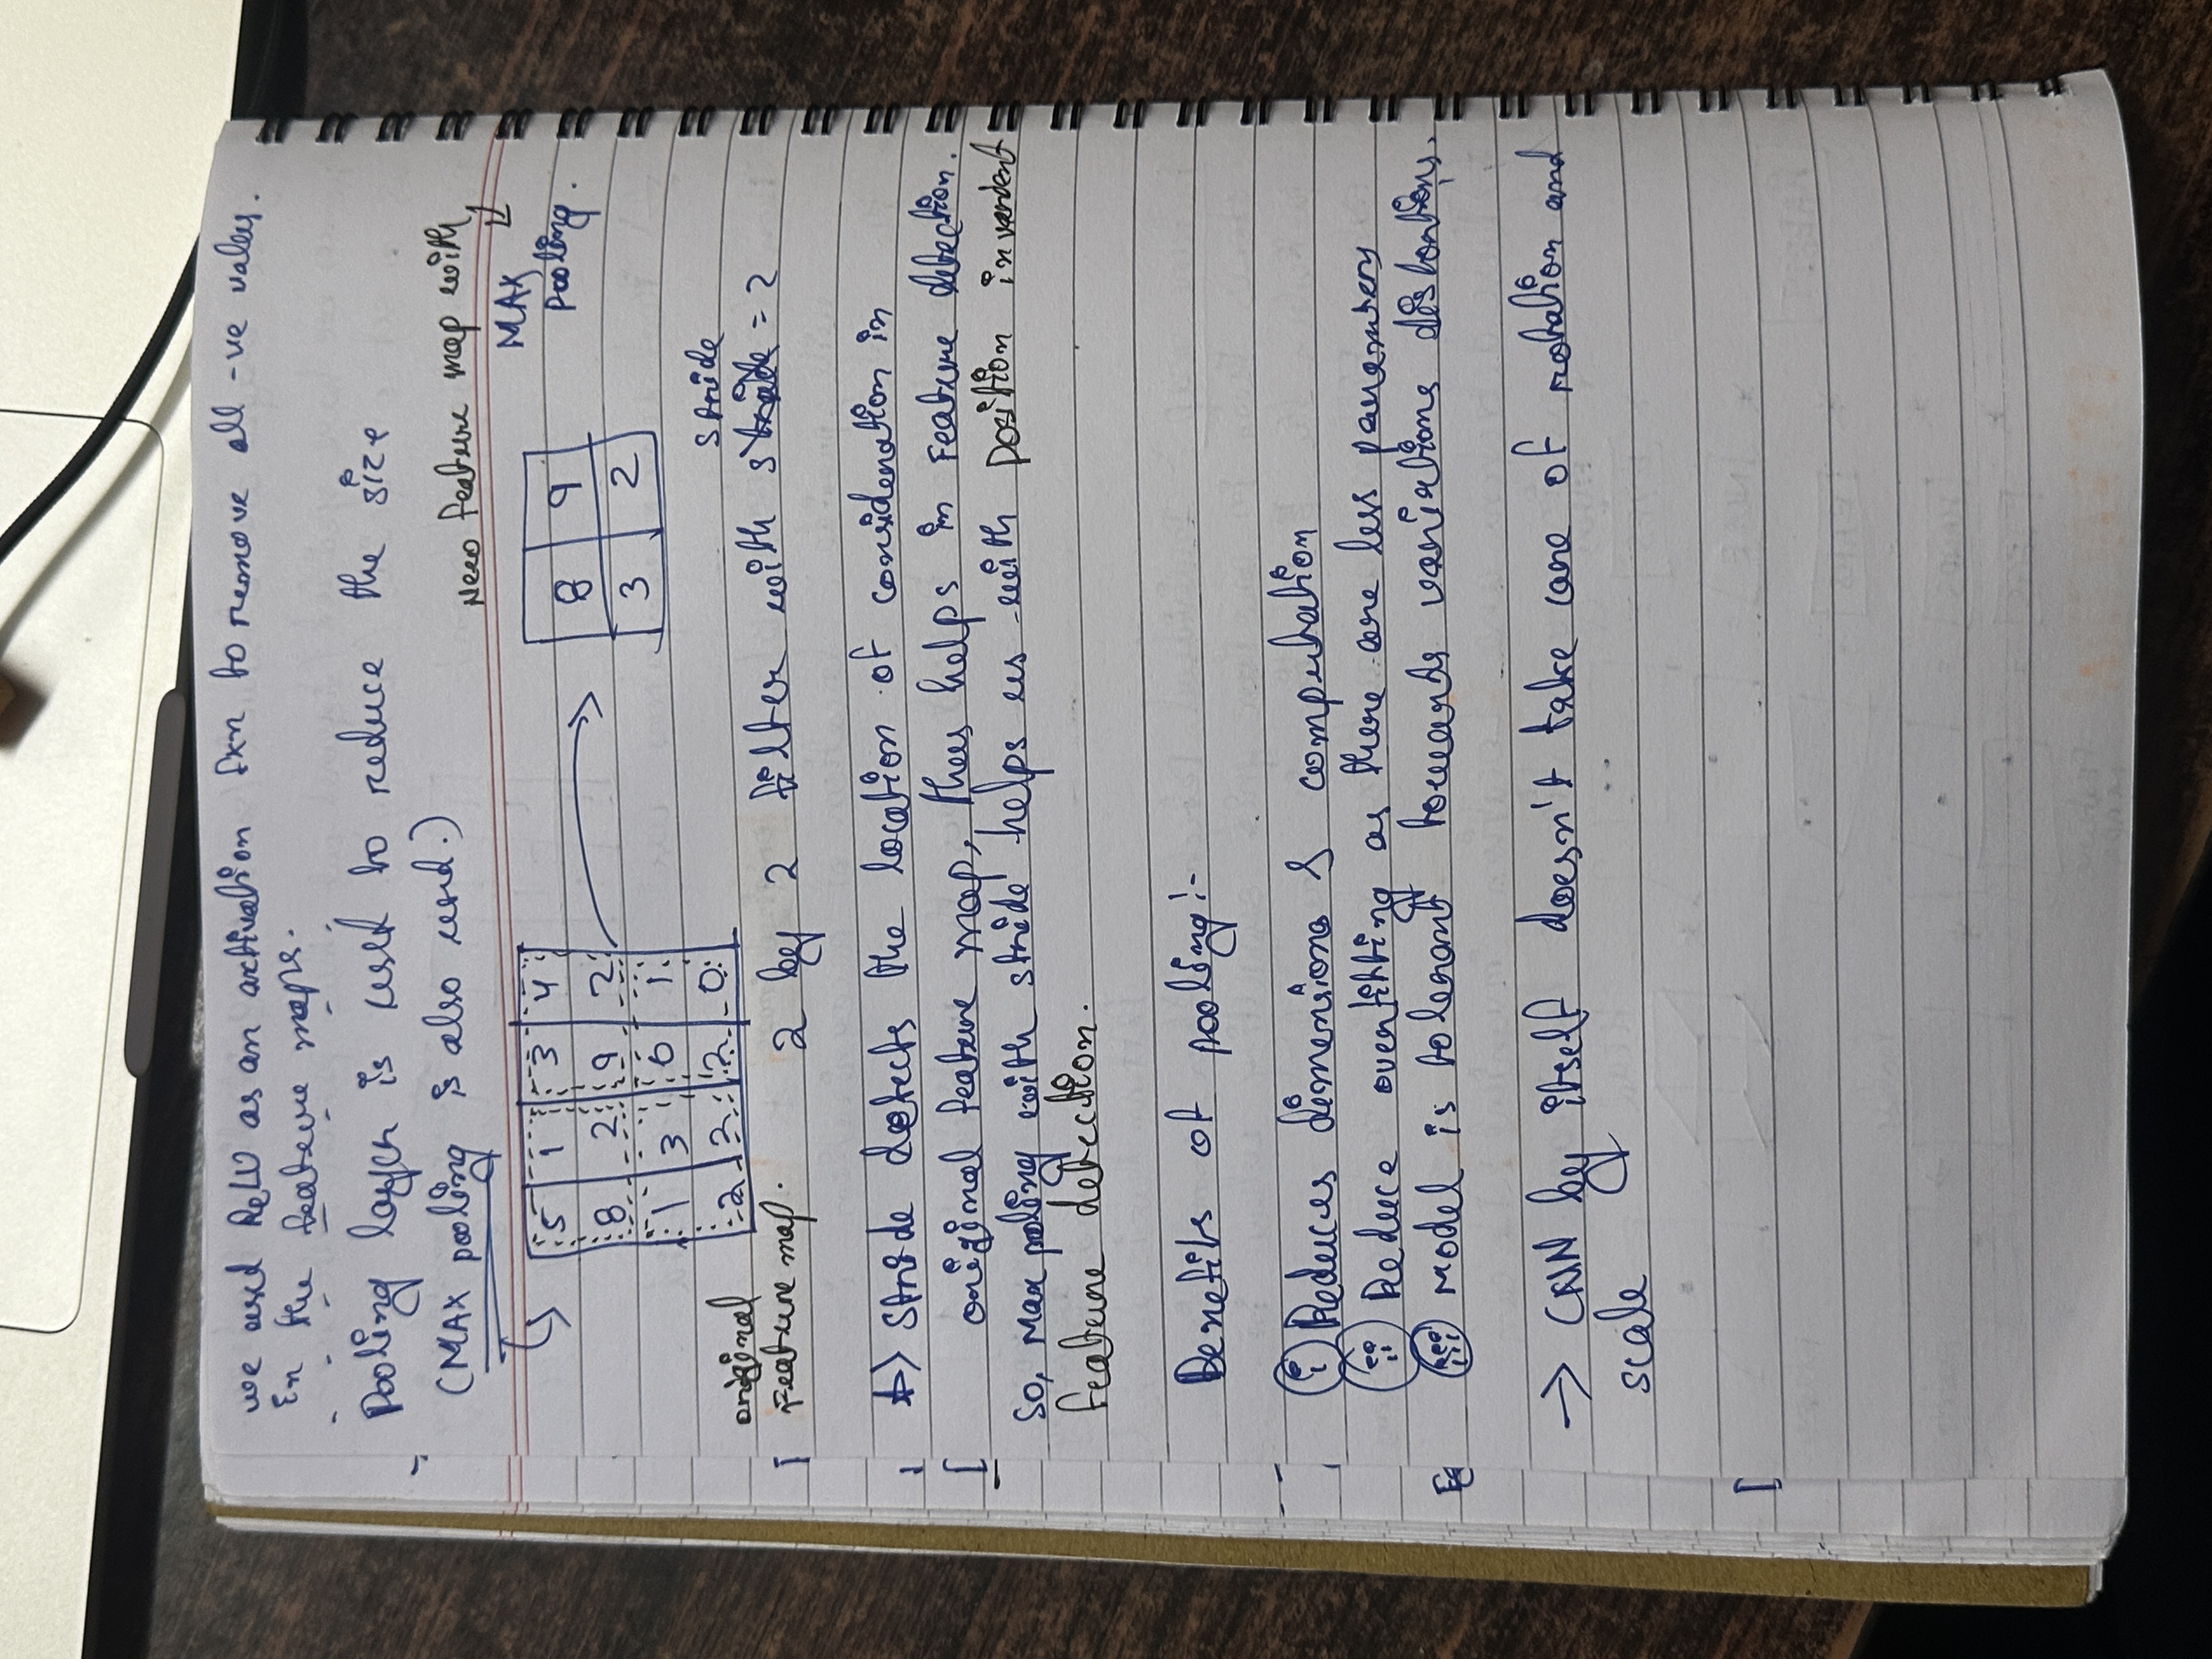 we used ReLU as an activation fxn to remove all -ve values.
in the feature maps.
Pooling layer is used to reduce the size
(MAX pooling is also used.)
New feature map with
MAX
pooling.
5 1 3 4
8 2 9 2
1 3 0 1
2 2 2 0
8 9
3 2
original
Feature map.
stride
2 by 2 filter with stride = 2
Stride detects the location of consideration in
original feature map, thus helps in Feature detection.
So, Max pooling with stride helps us with Position invarient
feature detection.
Benefits of pooling:-
(i) Reduces dimensions & computation
(ii) Reduce overfitting as there are less parameters
(iii) Model is tolerant towards variations distortions.
→ CNN by itself doesn't take care of rotation and
scale